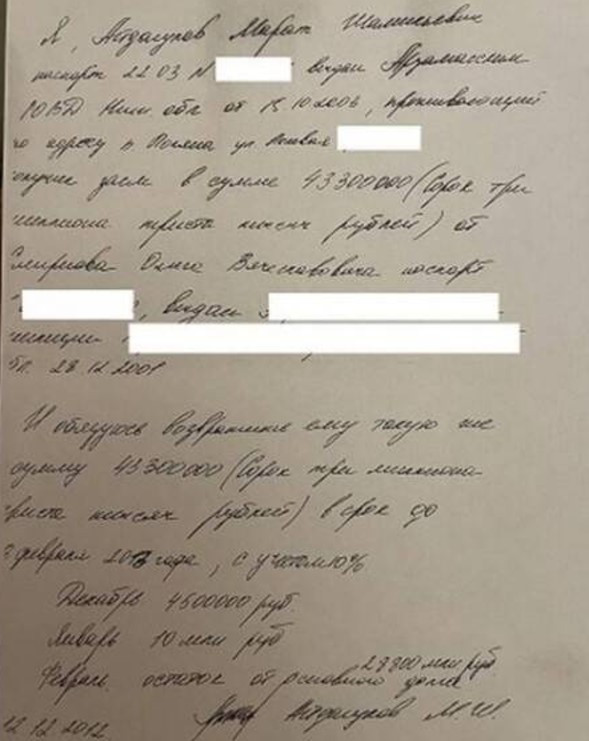 Я, Айдагулов Марат Шамильевич
паспорт 22 03 N выдан Арзамасским
ЮВД Ниж обл от 15.10.2003, проживающий
по адресу п. ул.
получил заём в сумме 43300000 (Сорок три
миллиона триста тысяч рублей) от
Смирнова Олега Вячеславовича паспорт
, выдан
милиции
28.12.2001
И обязуюсь возвратить ему такую же
сумму 43300000 (Сорок три миллиона
триста тысяч рублей) в срок до
февраля 2013 года, с учетом 10%
Декабрь 4500000 руб.
Январь 10 млн руб
28800 млн руб.
Февраль. остаток от основного долга
12.12.2012. М.Ш.